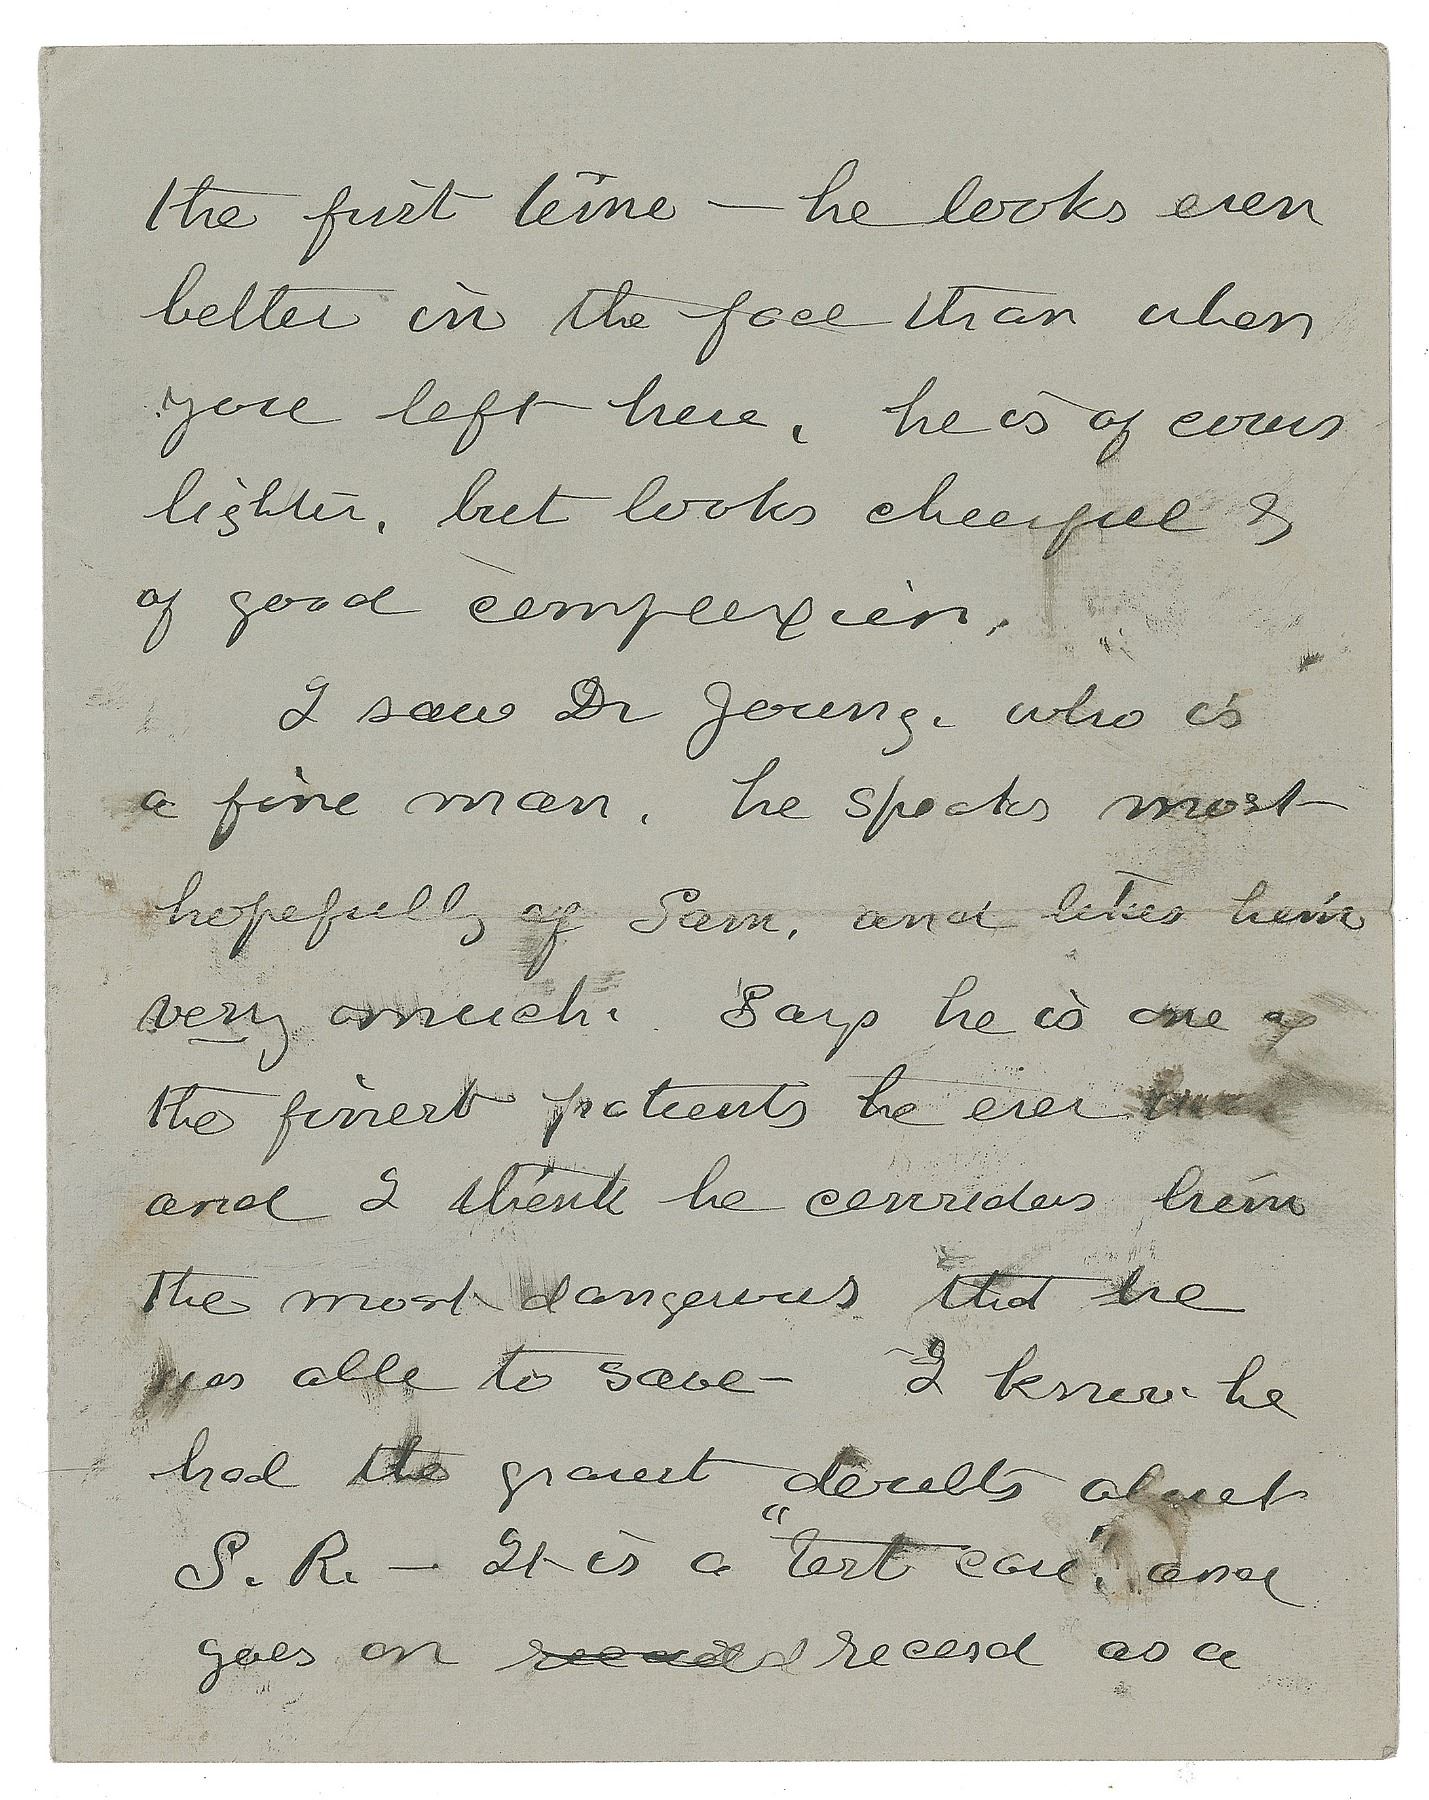 the first time — he looks even
better in the face than when
you left here. he is of cours
lighter, but looks cheerful &
of good complexion.
I saw Dr Young. who is
a fine man. he speaks most
hopefully of Sam, and likes him
very much. Says he is one of
the finest patients he ever
and I think he considers him
the most dangerous that he
was able to save — I know he
had the gravest doubts about
S. R. — It is a "test case", and
goes on record as a